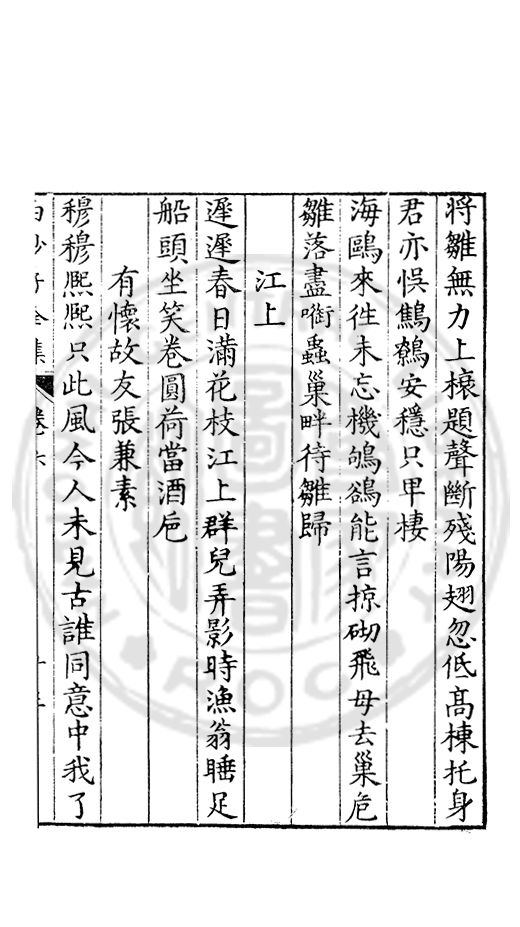 將雛無力上榱題聲斷殘陽翅忽低髙棟托身
君亦悞鷦鷯安穩只卑棲
海鷗來徃未忘機鴝鵒能言掠砌飛母去巢危
雛落盡啣蟲巢畔待雛歸
江上
遲遲春日滿花枝江上群兒弄影時漁翁睡足
船頭坐笑卷圓荷當酒巵
有懷故友張兼素
穆穆熙熙只此風今人未見古誰同意中我了